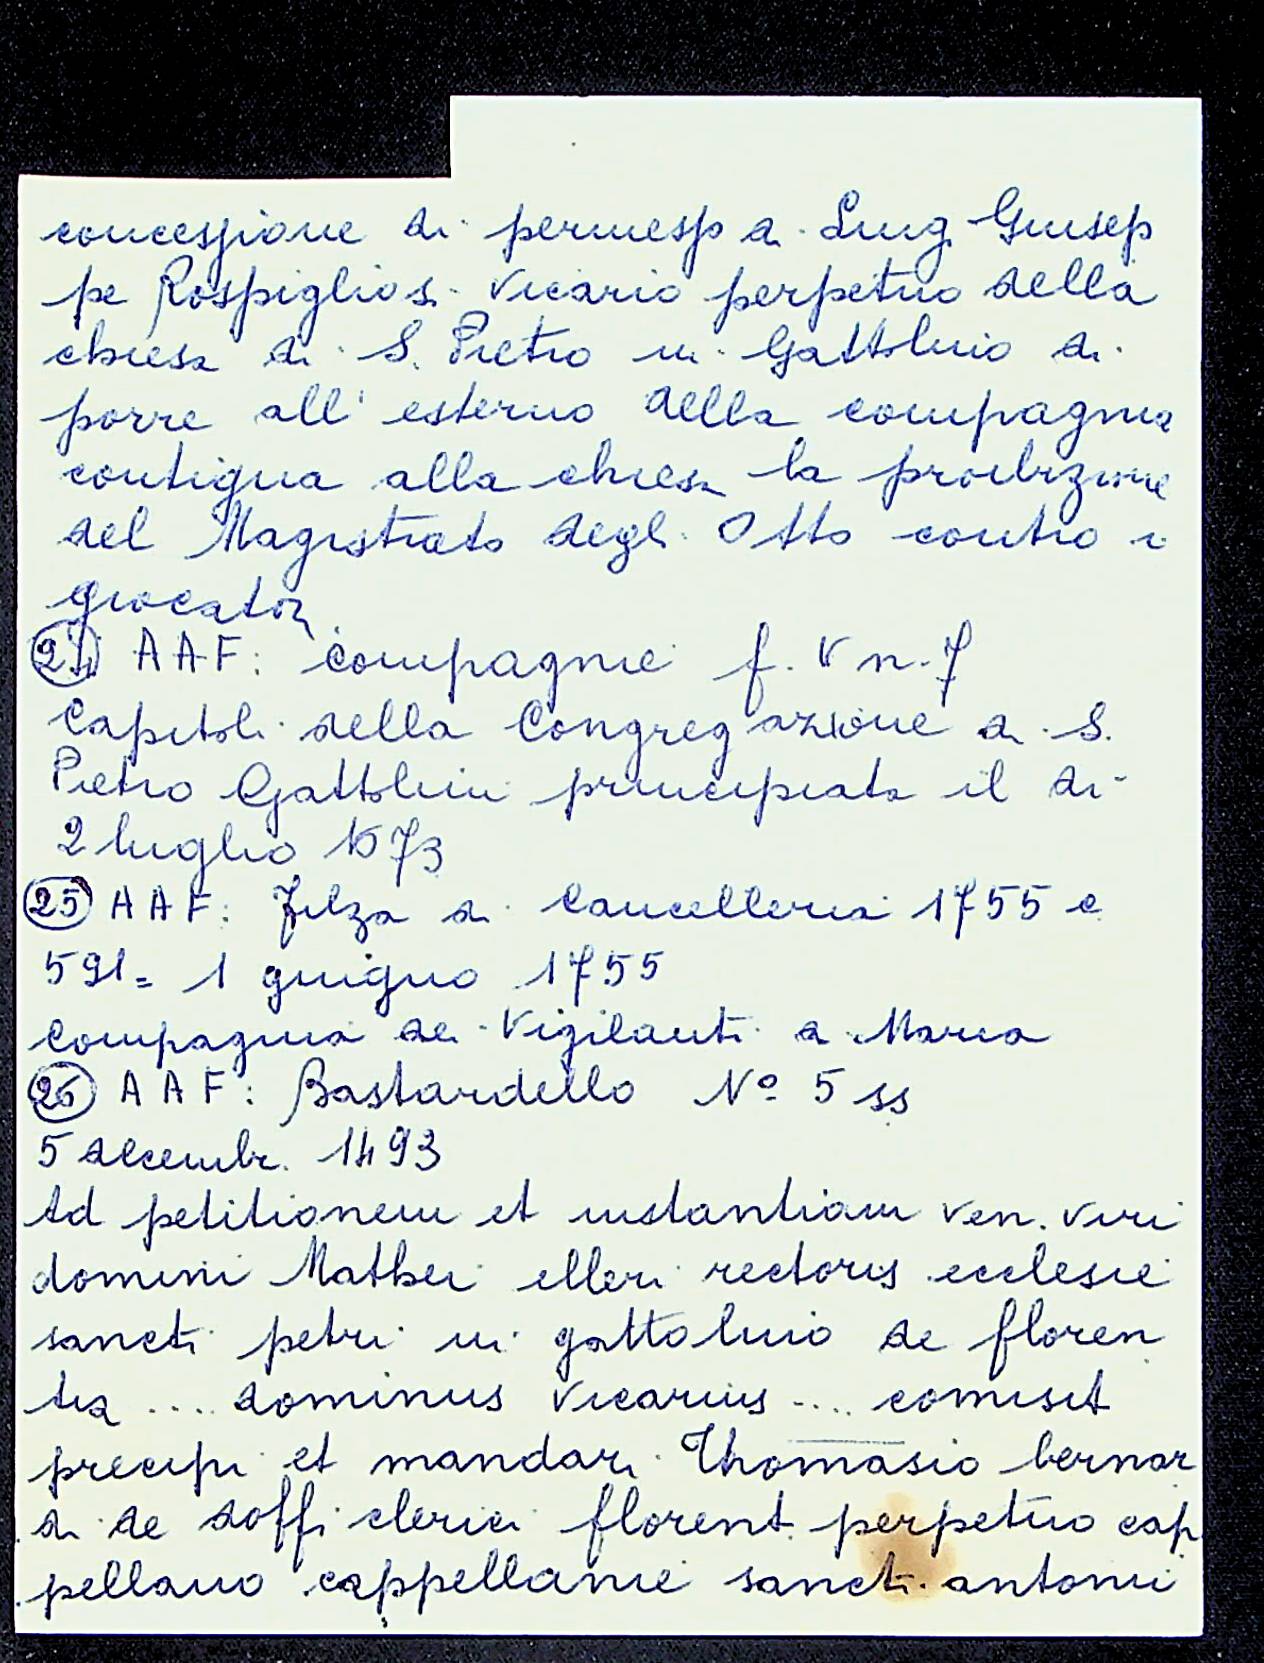 concessione di permesso a Luigi Giusep
pe Rospigliosi vicario perpetuo della
chiesa di S. Pietro in Gattolino di
porre all'esterno della compagnia
contigua alla chiesa la proibizione
del Magistrato degli Otto contro i
giocatori
24 AAF: compagnie f. V n. 7
Capitoli della Congregazione di S.
Pietro Gattolini principiata il dì
2 luglio 1673
25 AAF: Filza di Cancelleria 1755 c
591= 1 giugno 1755
Compagnia dei Vigilanti di Maria
26 AAF: Bastardello Nº 5 ss
5 decembr. 1493
Ad petitionem et instantiam ven. viri
domini Mathei illeri rectoris ecclesie
sancti petri in gattolino de floren
tia .... dominus vicarius .... comisit
precipi et mandari Thomasio bernar
di de doffi clerici florent. perpetuo cap
pellano cappellanie sancti antonii